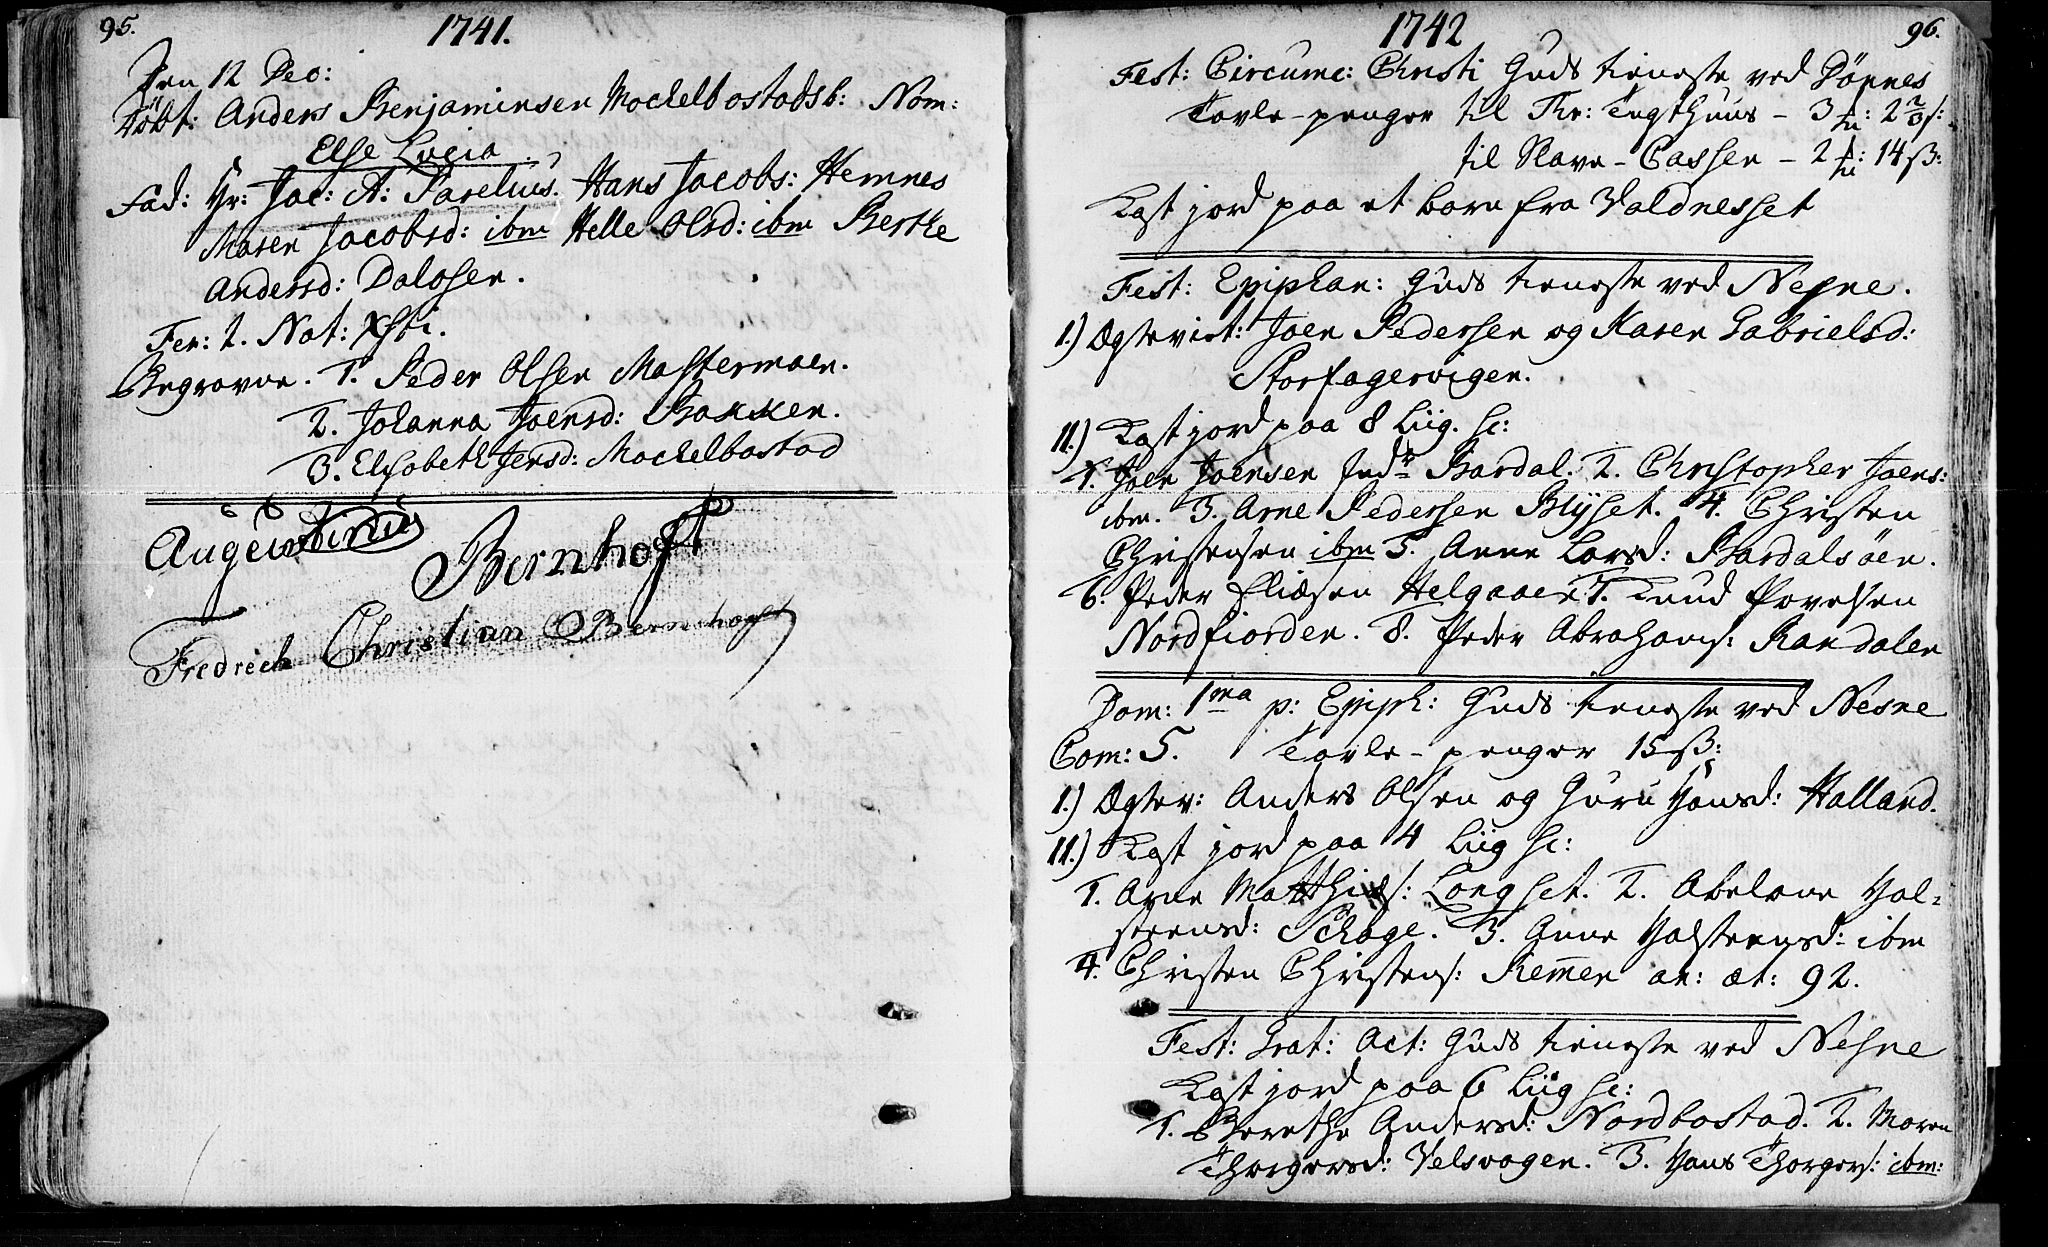 95.
1741.
Den 12 Dec:
Döbt: Anders Benjaminsen Mockelbostads b: Nom:
Else Lucia.
Fad: Hr: Jac: A: Parelius. Hans Jacobs: Hemnes
Maren Jacobsd: ibm Helle Olsd: ibm Berthe
Andersd: Dalosen.
Fer: 2. Nat: Xsti.
Begravne. 1. Peder Olsen Mastermoen.
2. Johanna Joensd: Bakken.
3. Elisabeth Jensd: Mockelbostad
Augustinus
Bernhoft
Fredrich Christian Bernhoft
1742
96.
Fest: Circumc: Christi Guds tieneste ved Dönnes
Tavle-penger til Thr: Tugthuus - 3 : 2 2/3 s:
til Slave-Cassen - 2 : 14 ß:
Kast jord paa et barn fra Valdnesset
Fest: Epiphan: Guds tieneste ved Nesne.
1.) Ægteviet: Joen Pedersen og Karen Gabrielsd:
Storfagervigen.
11.) Kast jord paa 8 Liig. sc:
1. Joen Joensen Ind Bardal. 2. Christopher Joens:
ibm. 3. Arne Pedersen Blyset. 4. Christen
Christensen ibm 5. Anne Larsd: Bardalsöen.
6. Peder Eliæsen Helgaaen 7. Knud Povelsen
Nordfiorden. 8. Peder Abrahams: Randalen
Dom: 1ma p: Epiph: Guds tieneste ved Nesne
Com: 5. Tavle-penger 15 ß:
1.) Ægtev: Anders Olsen og Guru Hansd: Halland.
11.) Kast jord paa 4 Liig sc:
1. Arne Matthiæs: Longset. 2. Abelone Hal=
steensd: Schage. 3. Anne Halsteensd: ibm
4. Christen Christens: Remmen an: æt: 92.
Fest: Grat: Act: Guds tieneste ved Nesne
Kast jord paa 6 Liig sc:
1. Berethe Andersd: Nordbostad. 2. Maren
Thorgersd: Velsvagen. 3. Hans Thorgers: ibm: